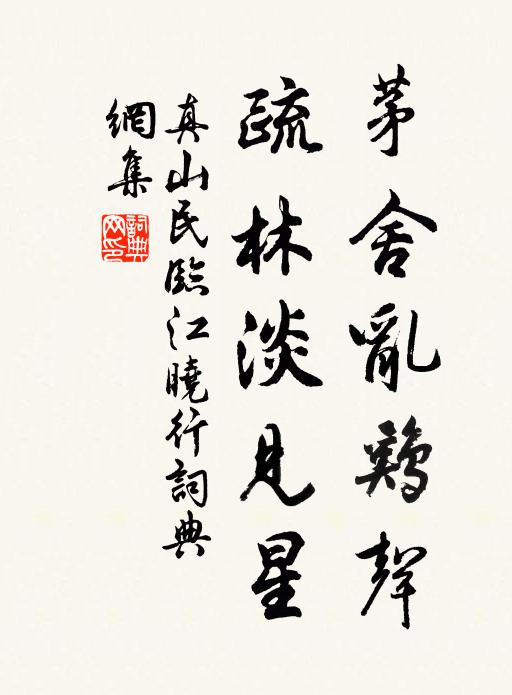 茅舍亂鷄聲
疏林淡見星
真山民臨江曉行詞典
網集
詞典
网印